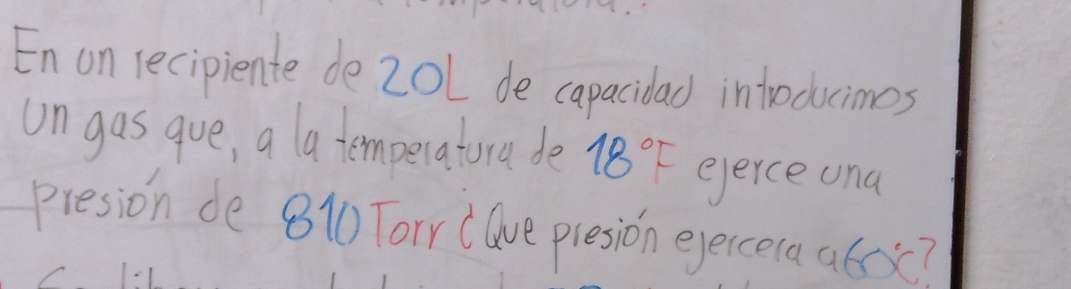 En un recipiente de 20L de capacidad introducimos
un gas que, a la temperatura de 18°F ejerce una
presión de 810 Torr ¿Que presión ejercera a 60°C?